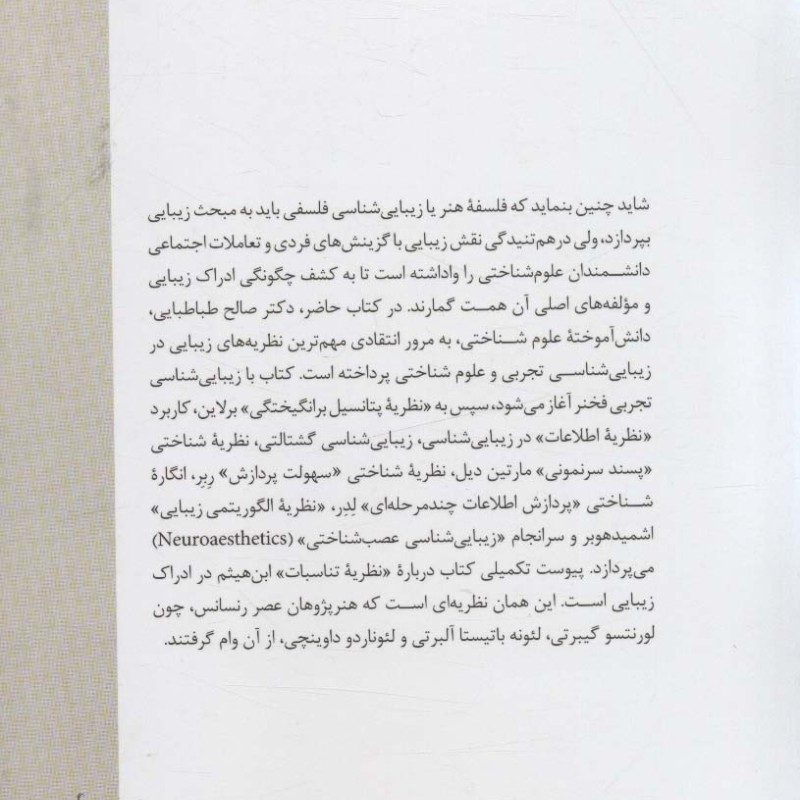 شاید چنین بنماید که فلسفهٔ هنر یا زیبایی‌شناسی فلسفی باید به مبحث زیبایی
بپردازد، ولی درهم‌تنیدگی نقش زیبایی با گزینش‌های فردی و تعاملات اجتماعی
دانشمندان علوم‌شناختی را واداشته است تا به کشف چگونگی ادراک زیبایی
و مؤلفه‌های اصلی آن همت گمارند. در کتاب حاضر، دکتر صالح طباطبایی،
دانش‌آموختهٔ علوم شناختی، به مرور انتقادی مهم‌ترین نظریه‌های زیبایی در
زیبایی‌شناسی تجربی و علوم شناختی پرداخته است. کتاب با زیبایی‌شناسی
تجربی فخنر آغاز می‌شود، سپس به «نظریهٔ پتانسیل برانگیختگی» برلاین، کاربرد
«نظریهٔ اطلاعات» در زیبایی‌شناسی، زیبایی‌شناسی گشتالتی، نظریهٔ شناختی
«پسند سرنمونی» مارتین دیل، نظریهٔ شناختی «سهولت پردازش» رِبِر، انگارهٔ
شناختی «پردازش اطلاعات چندمرحله‌ای» لِدِر، «نظریهٔ الگوریتمی زیبایی»
اشمیدهوبر و سرانجام «زیبایی‌شناسی عصب‌شناختی» (Neuroaesthetics)
می‌پردازد. پیوست تکمیلی کتاب دربارهٔ «نظریهٔ تناسبات» ابن‌هیثم در ادراک
زیبایی است. این همان نظریه‌ای است که هنرپژوهان عصر رنسانس، چون
لورنتسو گیبرتی، لئونه باتیستا آلبرتی و لئوناردو داوینچی، از آن وام گرفتند.